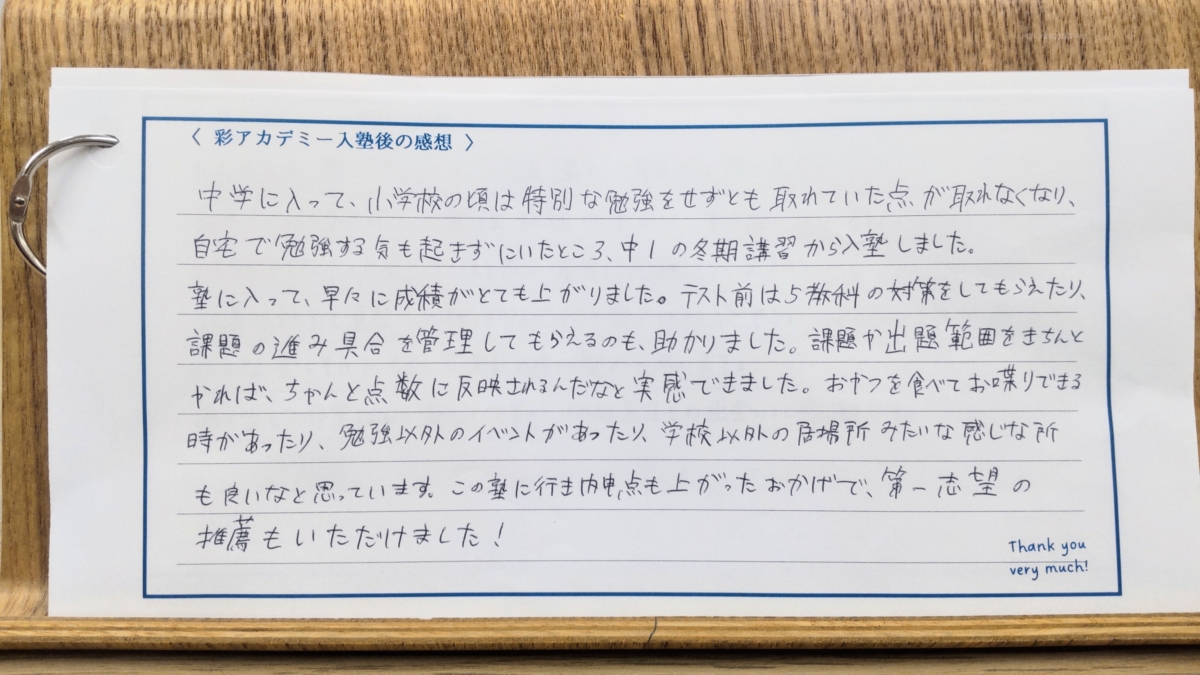 〈 彩アカデミー入塾後の感想 〉
中学に入って、小学校の頃は特別な勉強をせずとも取れていた点が取れなくなり、
自宅で勉強する気も起きずにいたところ、中1の冬期講習から入塾しました。
塾に入って、早々に成績がとても上がりました。テスト前は5教科の対策をしてもらえたり、
課題の進み具合を管理してもらえるのも、助かりました。課題か出題範囲をきちんと
やれば、ちゃんと点数に反映されるんだなと実感できました。おやつを食べてお喋りできる
時があったり、勉強以外のイベントがあったり、学校以外の居場所みたいな感じな所
も良いなと思っています。この塾に行き内申点も上がったおかげで、第一志望の
推薦もいただけました!
Thank you
very much!